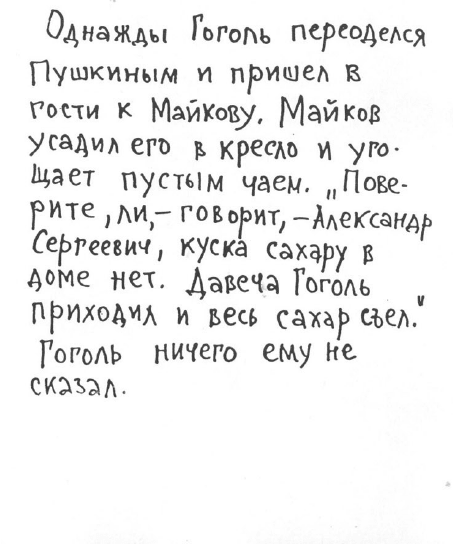 Однажды Гоголь переоделся
Пушкиным и пришел в
гости к Майкову. Майков
усадил его в кресло и уго-
щает пустым чаем. „Пове-
рите, ли,– говорит, –Александр
Сергеевич, куска сахару в
доме нет. Давеча Гоголь
приходил и весь сахар съел."
Гоголь ничего ему не
сказал.